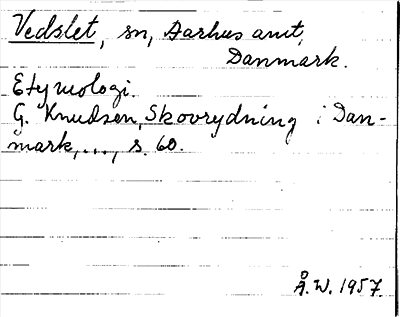 Vedslet, sn, Aarhus amt,
Danmark.
Etymologi.
G. Knudsen, Skovrydning i Dan-
mark, ..., s. 60.
Å. W. 1957.